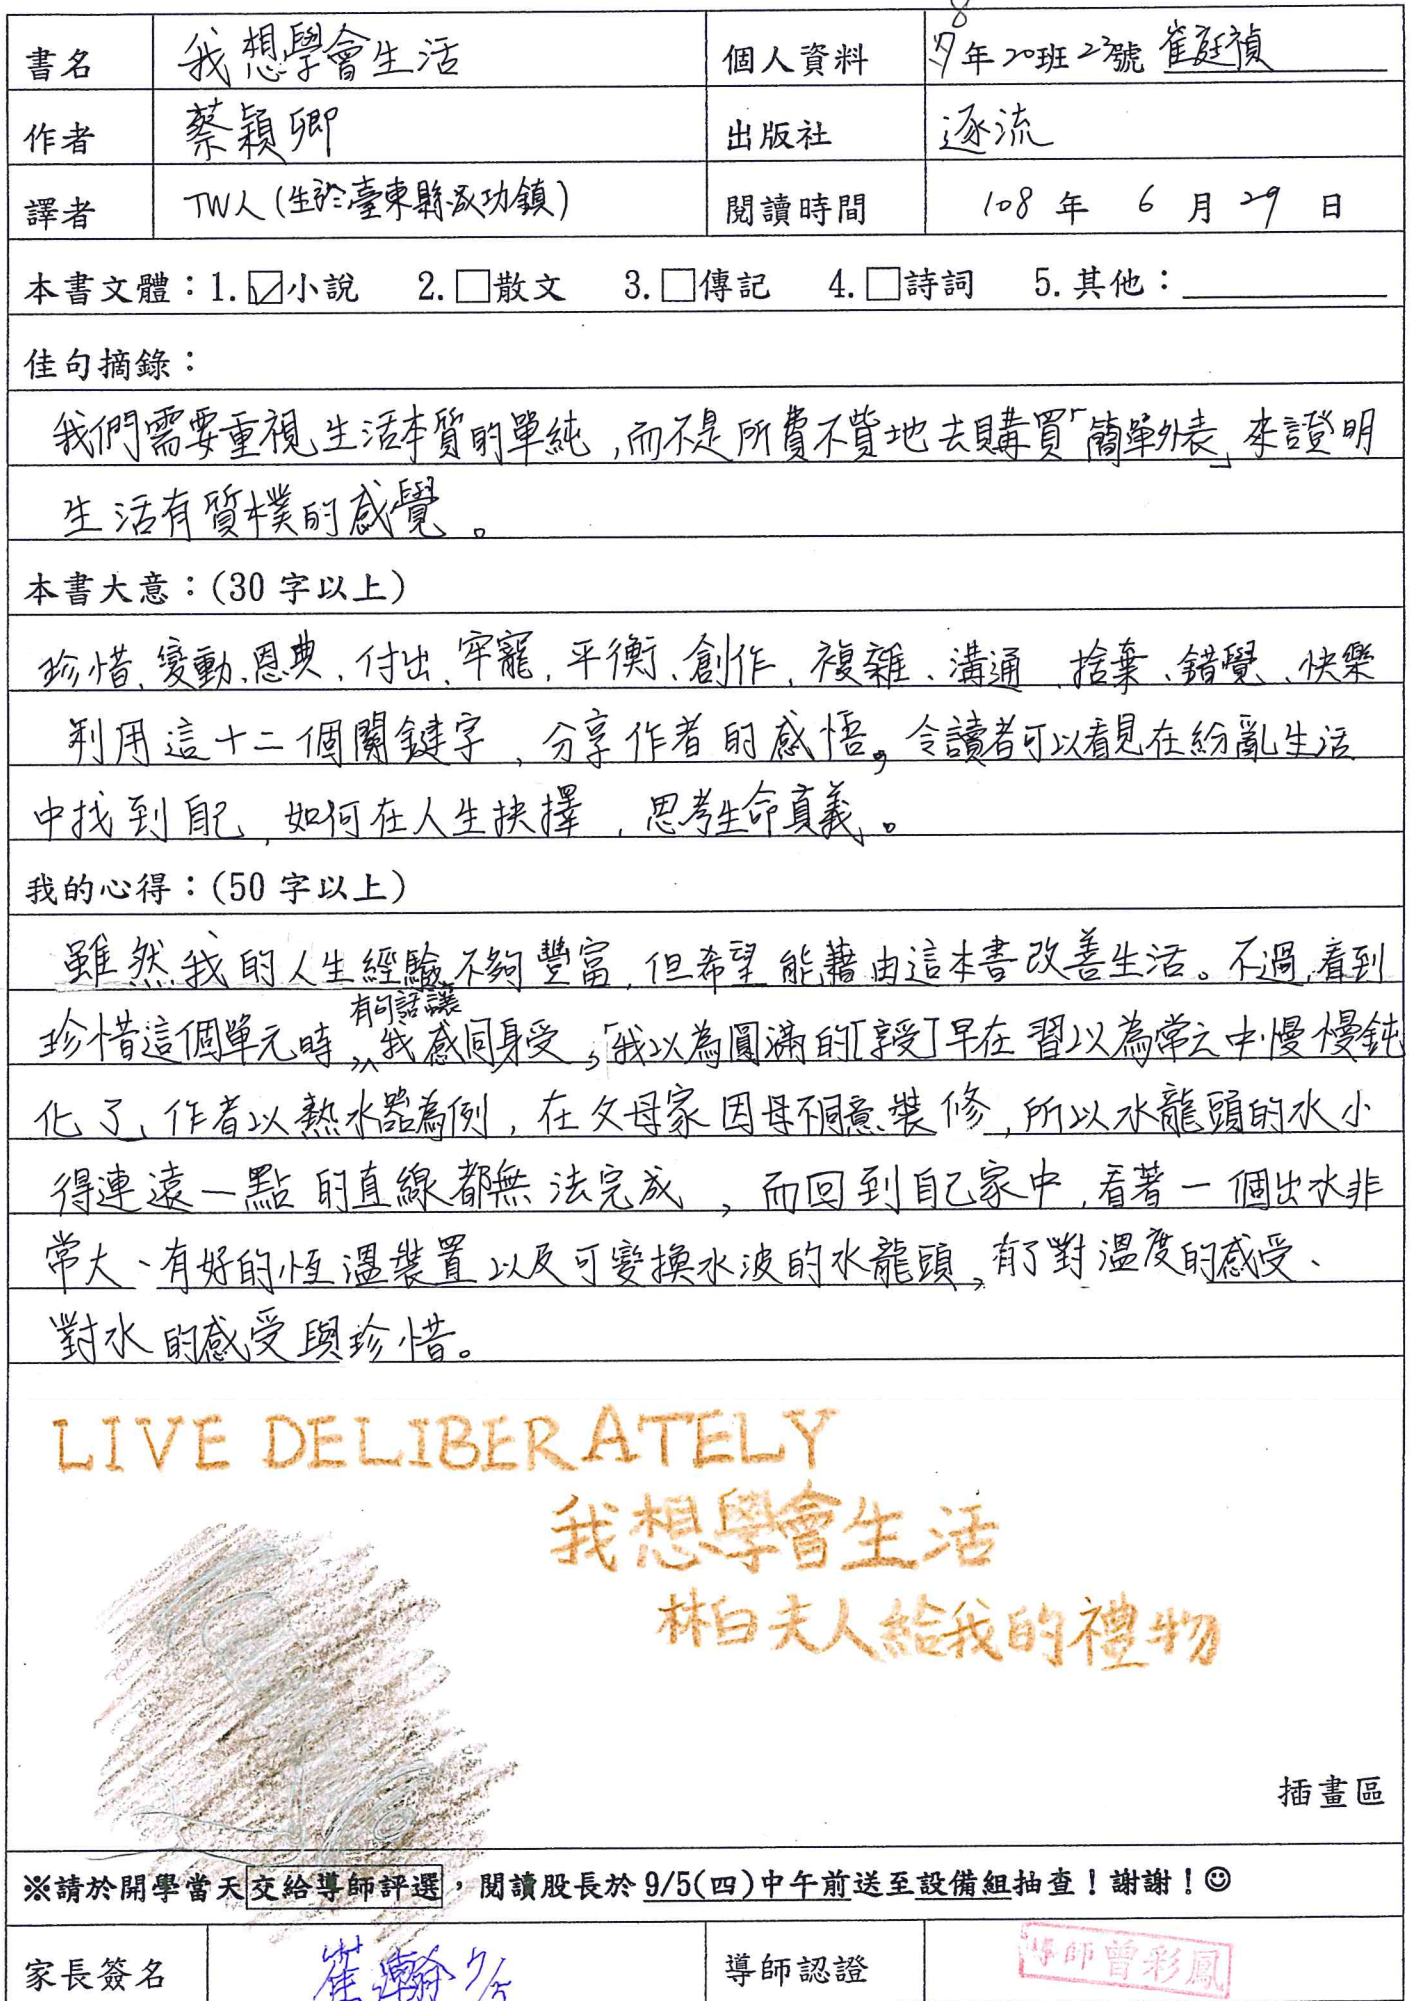 書名 我想學會生活 個人資料 8年20班23號 崔庭禎
作者 蔡穎卿 出版社 逐流
譯者 TW人(生於臺東縣成功鎮) 閱讀時間 108 年 6 月 29 日
本書文體：1.☑小說 2.□散文 3.□傳記 4.□詩詞 5.其他：
佳句摘錄：
我們需要重視生活本質的單純,而不是所費不貲地去購買「簡單外表」來證明
生活有質樸的感覺。
本書大意：(30字以上)
珍惜、變動、恩典、付出、牢寵、平衡、創作、複雜、溝通、捨棄、錯覺、快樂
利用這十二個關鍵字,分享作者的感悟,令讀者可以看見在紛亂生活
中找到自己,如何在人生抉擇,思考生命真義。
我的心得：(50字以上)
雖然我的人生經驗不夠豐富,但希望能藉由這本書改善生活。不過,看到
珍惜這個單元時,有句話讓我感同身受,「我以為圓滿的[享受]早在習以為常之中慢慢鈍
化了,作者以熱水器為例,在父母家因母不同意裝修,所以水龍頭的水小
得連遠一點的直線都無法完成,而回到自己家中,看著一個出水非
常大、有好的恆溫裝置以及可變換水波的水龍頭,有了對溫度的感受、
對水的感受與珍惜。
LIVE DELIBERATELY
我想學會生活
林白夫人給我的禮物
插畫區
※請於開學當天交給導師評選，閱讀股長於 9/5(四)中午前送至設備組抽查！謝謝！☺
家長簽名 導師認證 導師曾彩鳳